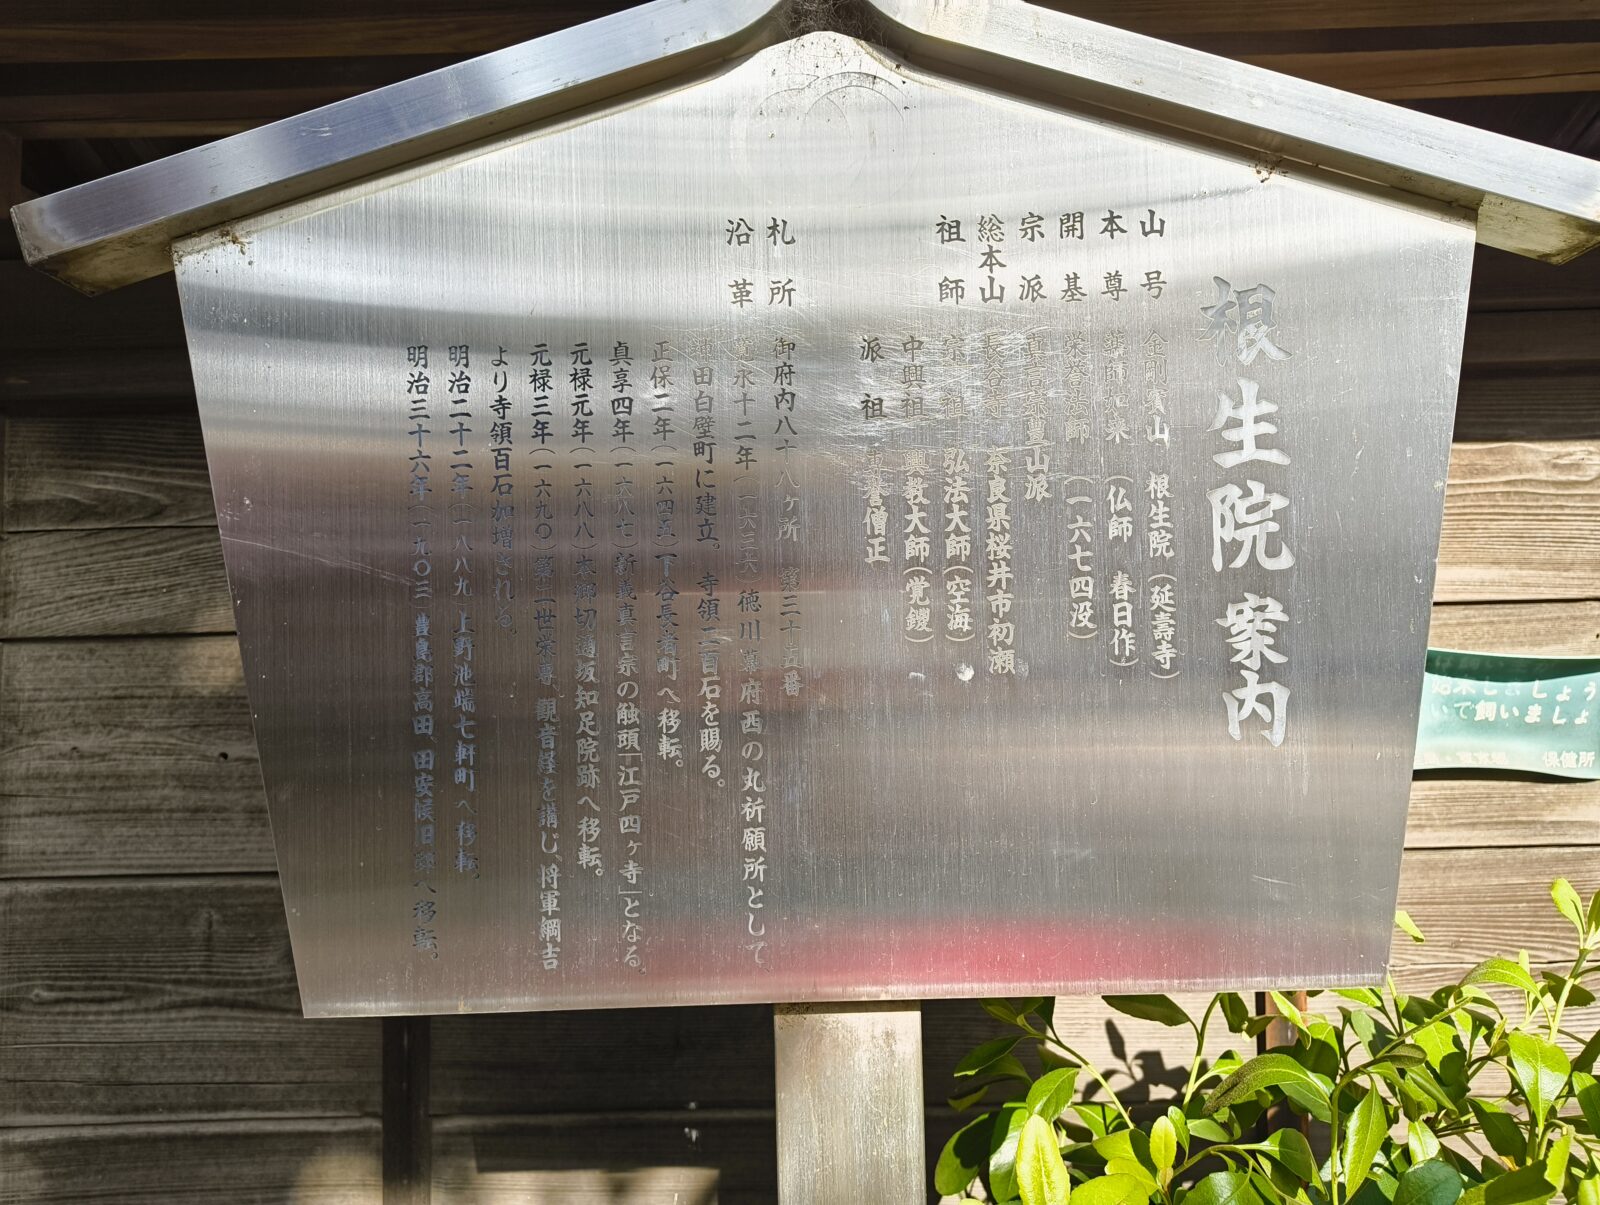 根生院案内
山号 金剛宝山 根生院(延壽寺)
本尊 薬師如来(仏師 春日作)
開基 栄誉法師(一六七四没)
宗派 真言宗豊山派
総本山 長谷寺 奈良県桜井市初瀬
祖師 宗祖 弘法大師(空海)
中興祖 興教大師(覚鑁)
派祖 専誉僧正
札所 御府内八十八ヶ所 第三十五番
沿革 寛永十二年(一六三六)徳川幕府西の丸祈願所として、
神田白壁町に建立。 寺領二百石を賜る。
正保二年(一六四五)下谷長者町へ移転。
貞享四年(一六八七)新義真言宗の触頭「江戸四ヶ寺」となる。
元禄元年(一六八八)本郷切通坂知足院跡へ移転。
元禄三年(一六九〇)第二世栄専、観音経を講じ、将軍綱吉
より寺領百石加増される。
明治二十二年(一八八九)上野池端七軒町へ移転。
明治三十六年(一九〇三)豊島郡高田、田安候旧邸へ移転。
しましょう
いで飼いましょ
保健所